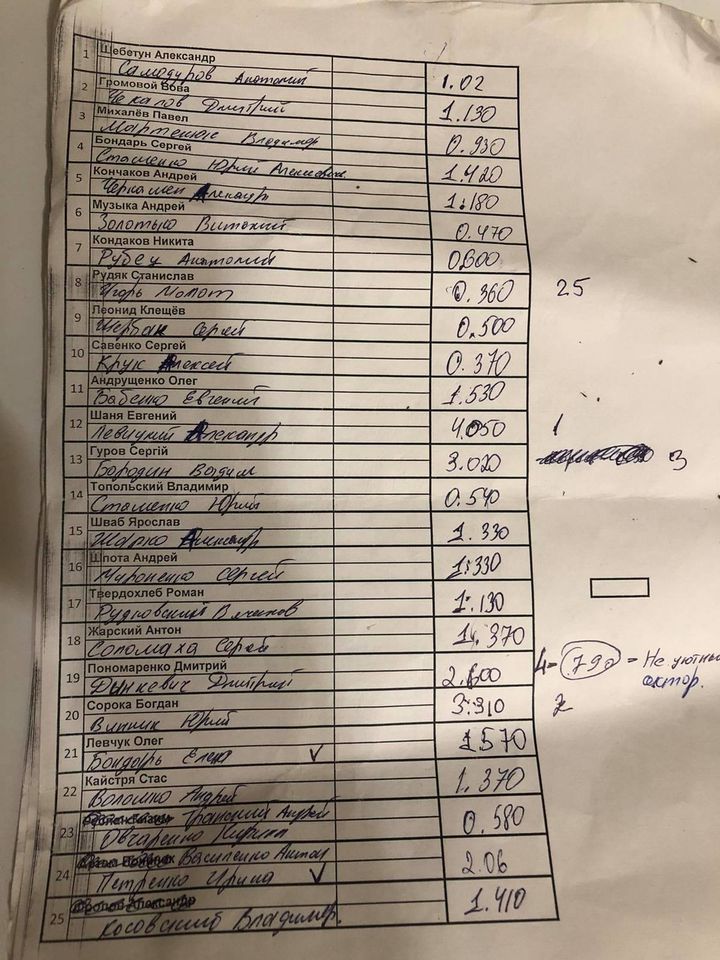 1 Шебетун Александр
Самодуров Анатолий 1.02
2 Громовой Вова
Чекалов Дмитрий 1.130
3 Михалёв Павел
Мартенюк Владимир 0.930
4 Бондарь Сергей
Стаменко Юрий Алексеевич 1.420
5 Кончаков Андрей
1.180
6 Музыка Андрей
Золотько Виталий 0.470
7 Кондаков Никита
Рубец Анатолий
8 Рудяк Станислав
Игорь Молот 0.360 25
9 Леонид Клещёв
Щербан Сергей 0.500
10 Савенко Сергей
Крук Алексей 0.370
11 Андрущенко Олег
Бабенко Евгений 1.530
12 Шаня Евгений
Левицкий Александр 4.050 1
13 Гуров Сергій
Бородин Вадим 3.020 3
14 Топольский Владимир
Стаменко Юрий 0.540
15 Шваб Ярослав
Жарко Александр 1.330
16 Шпота Андрей
Мироненко Сергей 1.330
17 Твердохлеб Роман
Рудковский 1.130
18 Жарский Антон
Соломаха Сергей 1.370
19 Пономаренко Дмитрий
Дункевич Дмитрий 2.600 4- 790 = Не уютный
сектор.
20 Сорока Богдан
Винник Юрий 3.310 2
21 Левчук Олег
Бондарь Елена ✓ 1.570
22 Кайстря Стас
Воломко Андрей 1.370
23 Андрей
Овчаренко Кирилл 0.580
24 Василенко Антон
Петренко Ирина ✓ 2.06
25 Косовский Владимир. 1.410